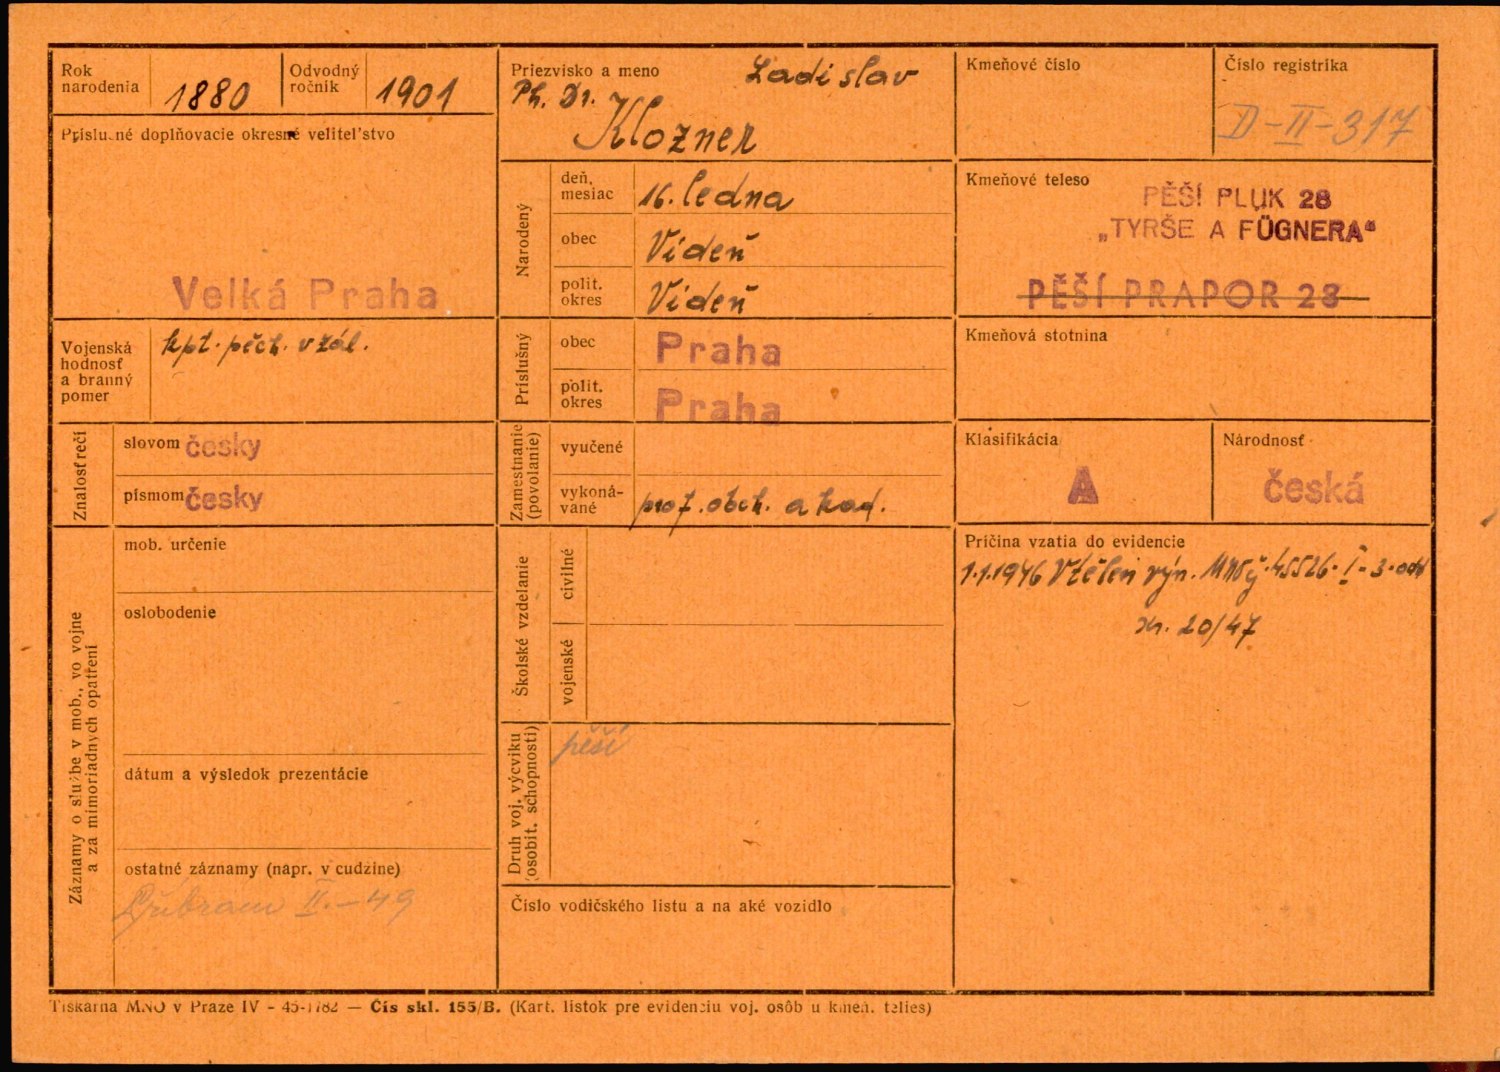 Rok narodenia 1880
Odvodný ročník 1901
Príslušné doplňovacie okresné veliteľstvo
Velká Praha
Vojenská hodnosť a branný pomer
kpt. pěch. v zál.
Znalosť rečí
slovom česky
písmom česky
Záznamy o službe v mob., vo vojne a za mimoriadnych opatření
mob. určenie
oslobodenie
dátum a výsledok prezentácie
ostatné záznamy (napr. v cudzine)
Příbram II. - 49
Priezvisko a meno Ladislav
Ph. Dr.
Klozner
Narodený
deň, mesiac 16. ledna
obec Vídeň
polit. okres Vídeň
Príslušný
obec Praha
polit. okres Praha
Zamestnanie (povolanie)
vyučené
vykonávané prof. obch. akad.
Školské vzdelanie
civilné
vojenské
Druh voj. výcviku (osobit. schopnosti)
pěší
Číslo vodičského listu a na aké vozidlo
Kmeňové číslo
Číslo registríka
D-II-317
Kmeňové teleso
PĚŠÍ PLUK 28
„TYRŠE A FÜGNERA“
PĚŠÍ PRAPOR 28
Kmeňová stotnina
Klasifikácia
A
Národnosť
česká
Príčina vzatia do evidencie
1.1.1946 Vtělen výn. 45526. I-3. odd
20/47
Tiskárna MNO v Praze IV - 45-1782 — Čís skl. 155/B. (Kart. lístok pre evidenciu voj. osôb u kmeň. telies)